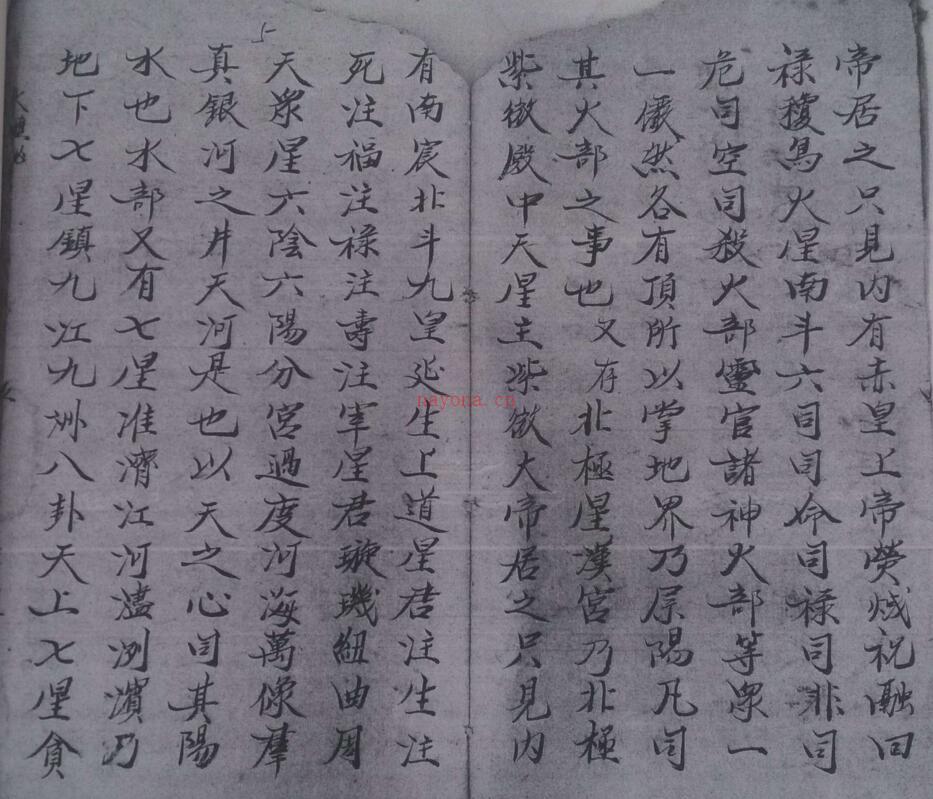 帝居之只見内有赤皇上帝熒惑祝融回
祿積鳥火星南斗六司司命司祿司非司
危司空司殺火部靈官諸神火部等眾一
一儼然各有頂所以掌地界乃屬陽凡司
其火部之事也又存北極星漢宮乃北極
紫微殿中天星主紫微大帝居之只見内
有南宸北斗九皇延生上道星君注生注
死注福注祿注壽注宰星君璇璣紐曲周
天眾星六陰六陽分宮過度河海萬像群
真銀河之井天河是也以天之心司其陽
水也水部又有七星淮濟江河瀛洌濱乃
地下七星鎮九江九洲八卦天上七星貪
5
nayona.cn